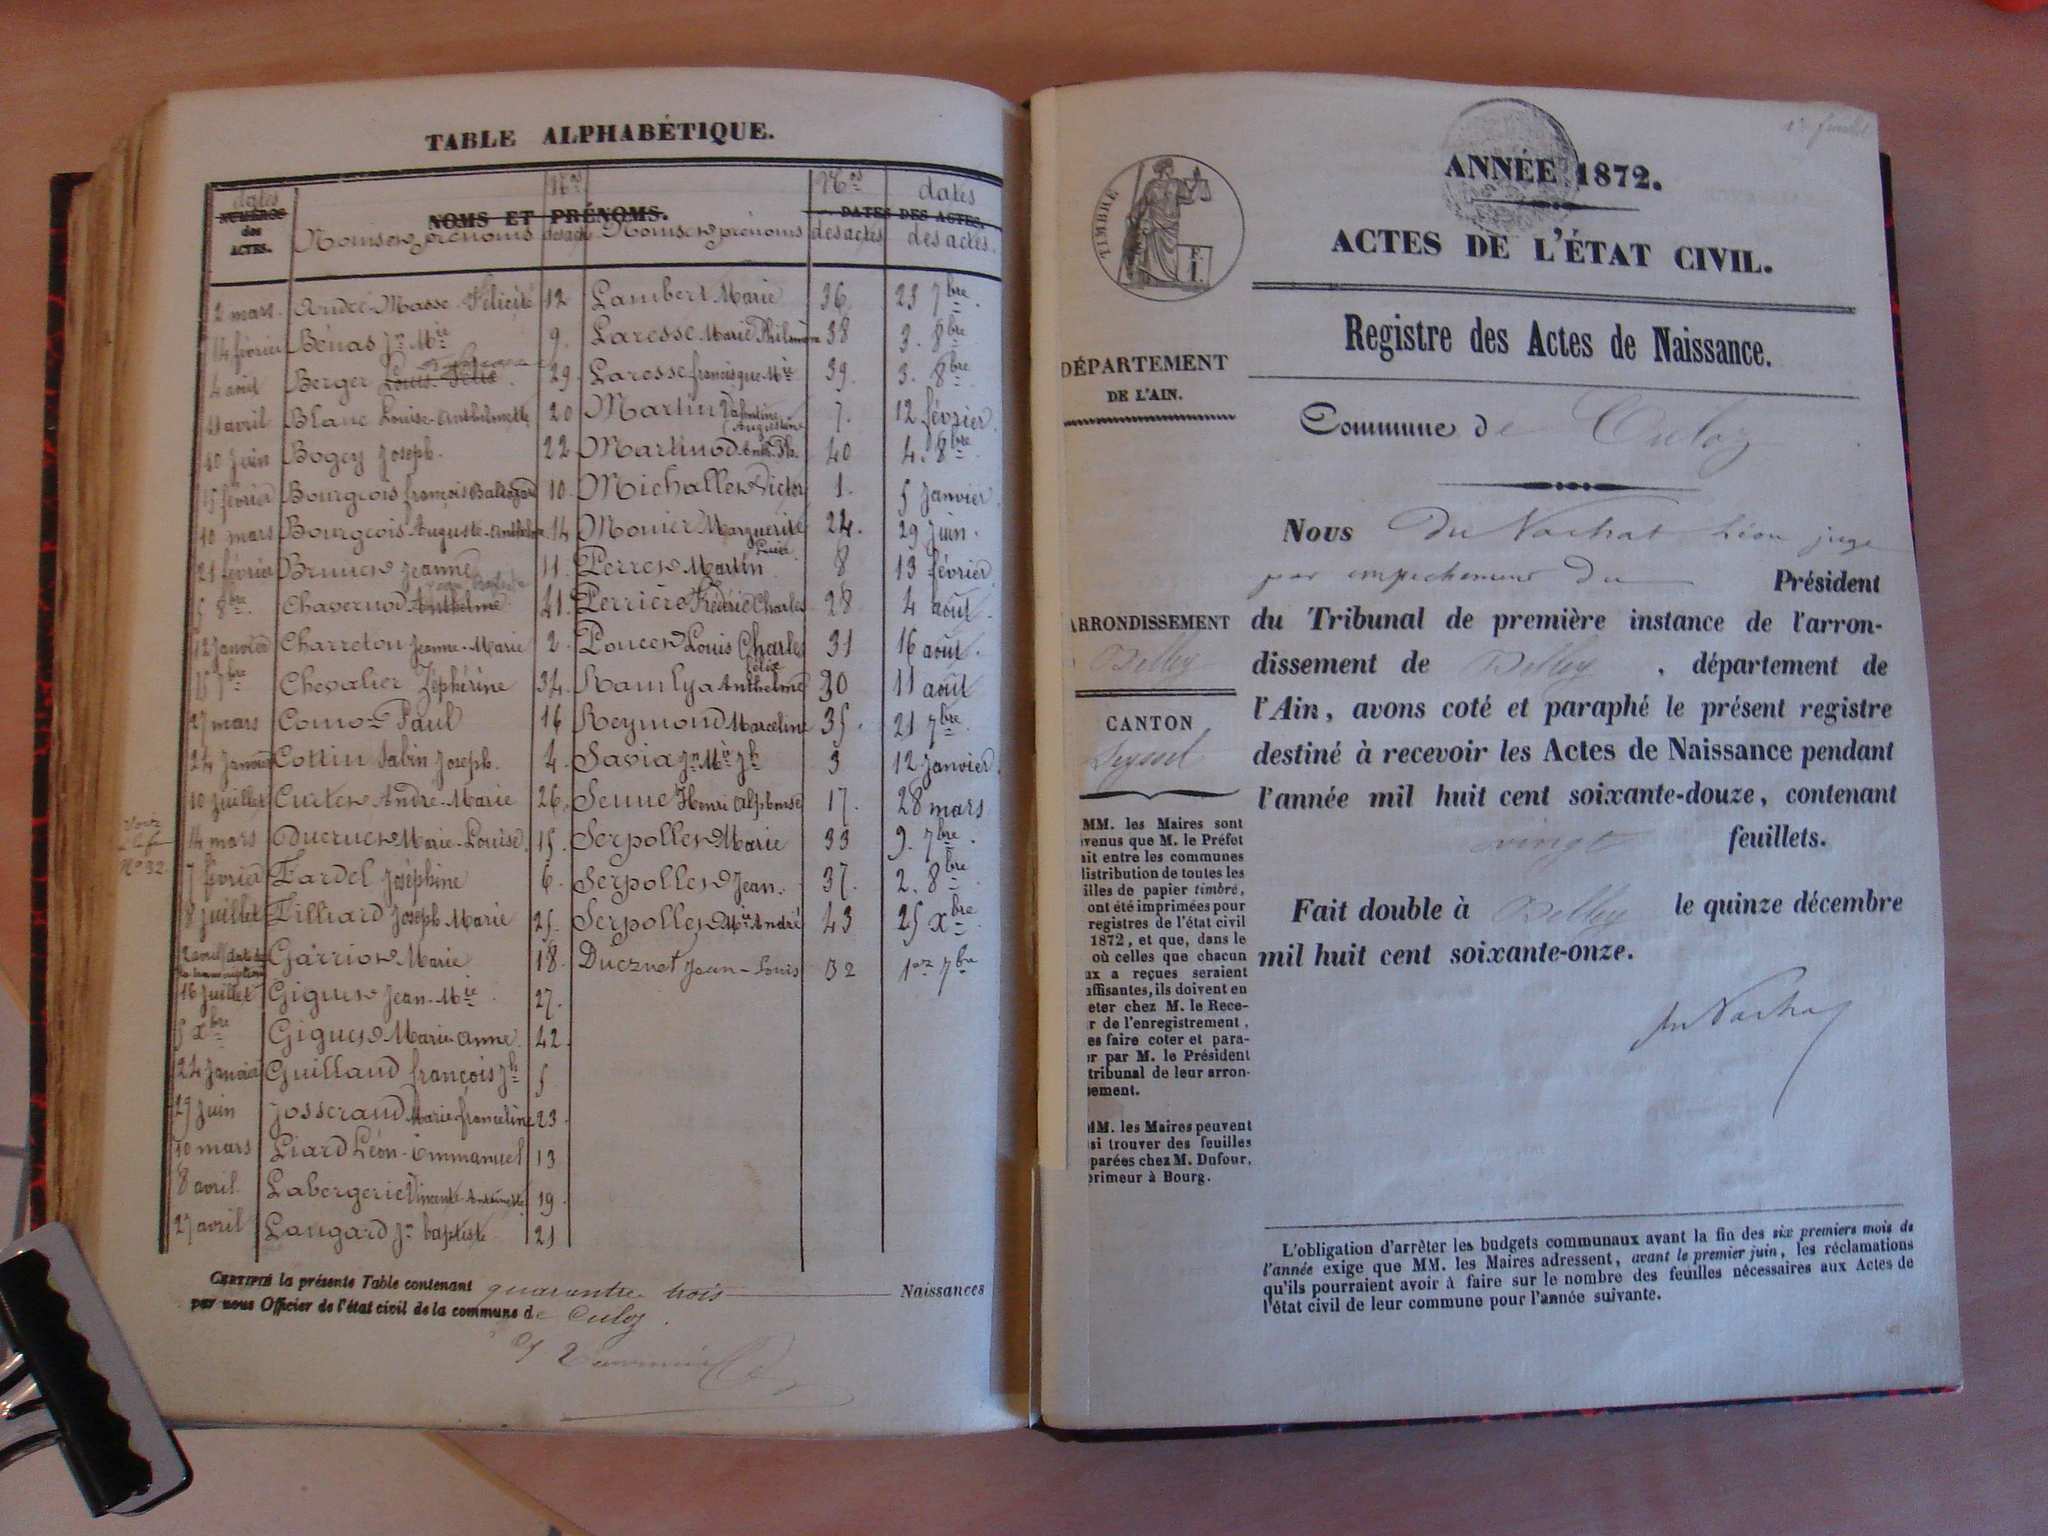 TABLE ALPHABÉTIQUE.
dates Nos Nos dates
NUMÉROS NOMS ET PRÉNOMS. DATES DES ACTES.
des
ACTES. Noms et prénoms des actes Noms et prénoms des actes des actes.
2 mars André-Masse Félicité 12 Lambert Marie 36. 23 7bre.
14 février Bénas Jn Mie 9. Laresse Marie Philomène 38 3. 8bre
4 août Berger Louis Félix 29. Laresse françisque Mie 39. 3. 8bre
11 avril Blanc Louise-Anthelmette 20 Martin Valentine Augustine 7. 12 février.
10 juin Bogey Joseph. 22 Martinod Anth. Ph. 40 4. 8bre
15 février Bourgeois françois Baltazard 10. Michallet Victor 1. 5 janvier.
10 mars Bourgeois Auguste-Anthelme 14 Monier Marguerite 24. 29 juin.
21 février Brunet Jeanne 11. Perret Martin 8 13 février.
5 8bre. Chavernod Anthelme 41. Perrière Frédéric Charles 28 4 août.
12 janvier Charreton Jeanne-Marie 2. Poncet Louis Charles 31 16 août.
7bre Chevalier Zéphirine 34. Ramlya Anthelme Félix 30 11 août
27 mars Comoz Paul 16 Reymond Marceline 35. 21 7bre.
24 janvier Cottin Sabin Joseph. 4. Savia Jn Mie Jh 3 12 janvier.
10 juillet Curtet André-Marie 26. Senne Henri Alphonse 17. 28 mars
14 mars Ducruet Marie-Louise. 15. Serpollet Marie 33 9. 7bre.
No 32.
7 février Fardel Joséphine 6. Serpollet Jean. 37. 2. 8bre
8 juillet Filliard Joseph Marie 25. Serpollet Mie André 43 25 xbre
2 avril date de la transcription Garriot Marie 18. Ducruet Jean-Louis 32 1er 7bre
16 juillet Giguet Jean-Mie. 27.
5 xbre Giguet Marie-Anne. 42.
24 janvier Guilland françois Jh 5
29 juin Josserand Marie-franceline 23
10 mars Liard Léon-Emmanuel 13
8 avril. Labergerie Vincente-Antoinette 19.
27 avril Laugard Jn baptiste 21
CERTIFIÉ la présente Table contenant quarante trois Naissances
par nous Officier de l'état civil de la commune de Culoz.
ANNÉE 1872.
TIMBRE
ACTES DE L'ÉTAT CIVIL.
Registre des Actes de Naissance.
DÉPARTEMENT
DE L'AIN.
Commune de Culoz
Nous Du Nachat Léon juge
par empêchement du Président
ARRONDISSEMENT
Belley
CANTON
Seyssel
du Tribunal de première instance de l'arron-
dissement de Belley, département de
l'Ain, avons coté et paraphé le présent registre
destiné à recevoir les Actes de Naissance pendant
l'année mil huit cent soixante-douze, contenant
vingt feuillets.
Fait double à Belley le quinze décembre
mil huit cent soixante-onze.
du Nachat
MM. les Maires sont
venus que M. le Préfet
ait entre les communes
distribution de toutes les
illes de papier timbré,
ont été imprimées pour
registres de l'état civil
1872, et que, dans le
où celles que chacun
ux a reçues seraient
uffisantes, ils doivent en
eter chez M. le Rece-
r de l'enregistrement,
es faire coter et para-
er par M. le Président
tribunal de leur arron-
sement.
MM. les Maires peuvent
si trouver des feuilles
parées chez M. Dufour,
primeur à Bourg.
L'obligation d'arrêter les budgets communaux avant la fin des six premiers mois de
l'année exige que MM. les Maires adressent, avant le premier juin, les réclamations
qu'ils pourraient avoir à faire sur le nombre des feuilles nécessaires aux Actes de
l'état civil de leur commune pour l'année suivante.